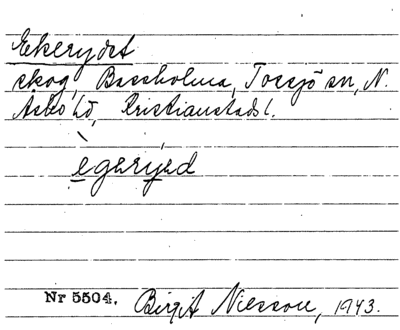 Ekerydet
skog, Bassholma, Tossjö sn, N.
Åsbo hd, Kristianstads l.
egeryed
Nr 5504. Birgit Nilsson, 1943.